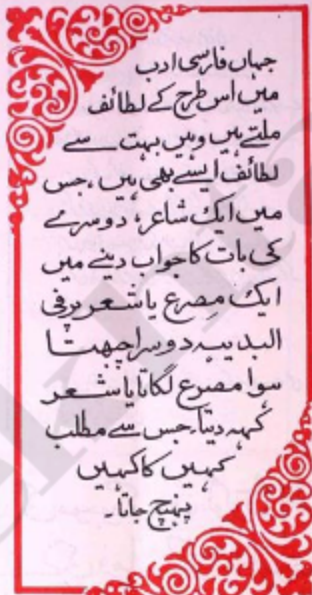 جہاں فارسی ادب
میں اس طرح کے لطائف
ملتے ہیں وہیں بہت سے
لطائف ایسے بھی ہیں ،جس
میں ایک شاعر، دوسرے
کی بات کا جواب دینے میں
ایک مصرع یا شعر پر فی
البدیہہ دوسرا چھبتا
ہوا مصرع لگاتا یا شعر
کہہ دیتا۔جس سے مطلب
کہیں کا کہیں
پہنچ جاتا۔